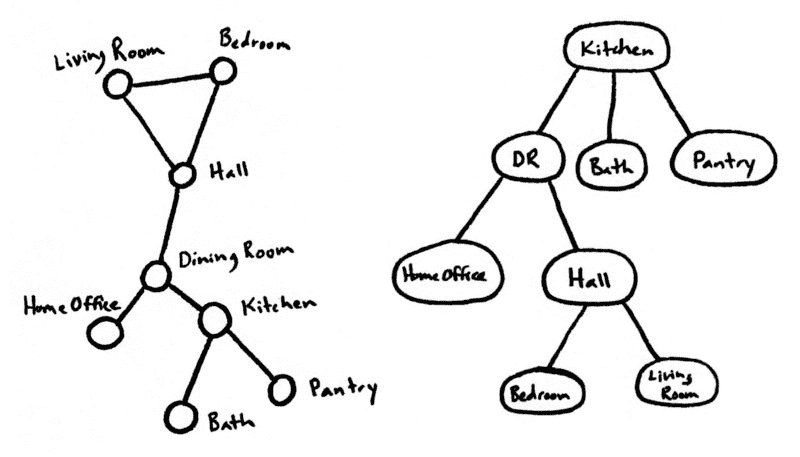 Living Room
Bedroom
Hall
Dining Room
Home Office
Kitchen
Pantry
Bath
Kitchen
DR
Bath
Pantry
Home Office
Hall
Bedroom
Living
Room